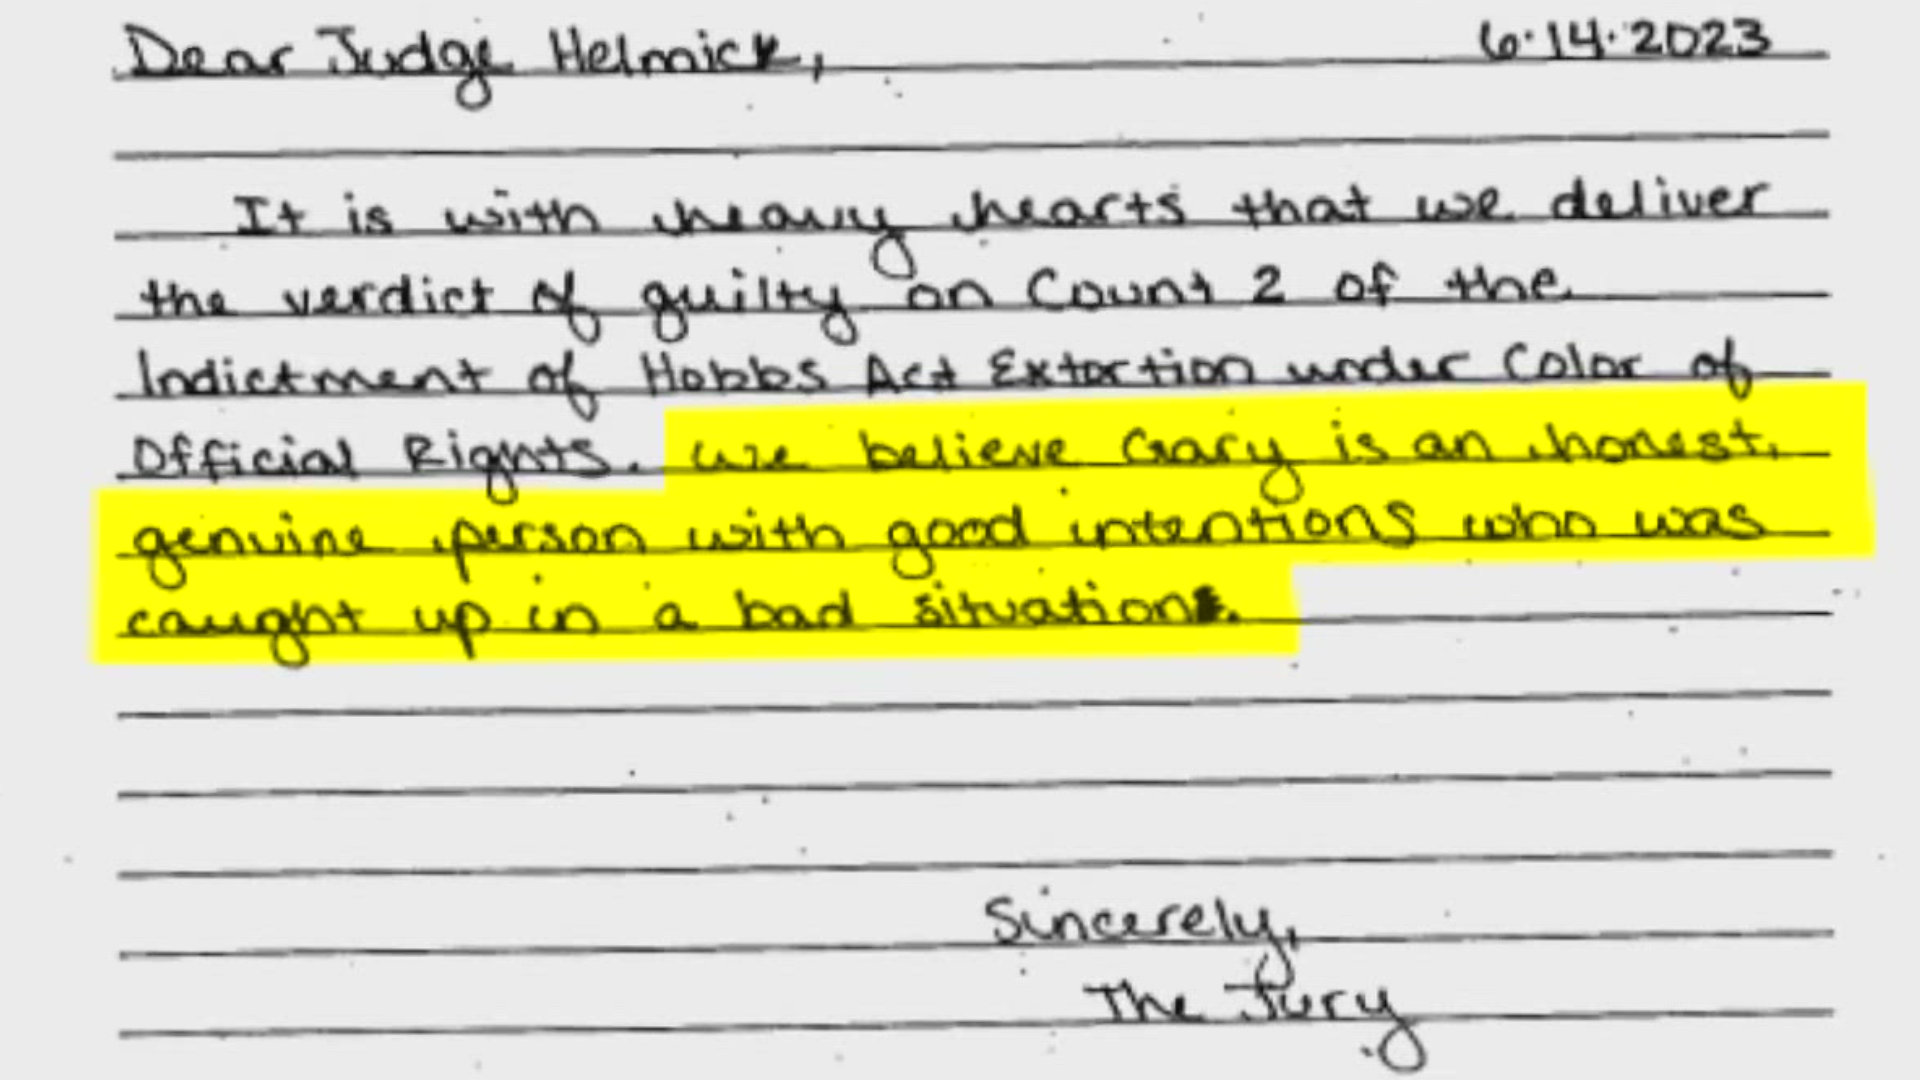 Dear Judge Helmick, 6.14.2023
It is with heavy hearts that we deliver
the verdict of guilty on Count 2 of the
Indictment of Hobbs Act Extortion under Color of
Official Rights. We believe Gary is an honest,
genuine person with good intentions who was
caught up in a bad situation.
Sincerely,
The Jury